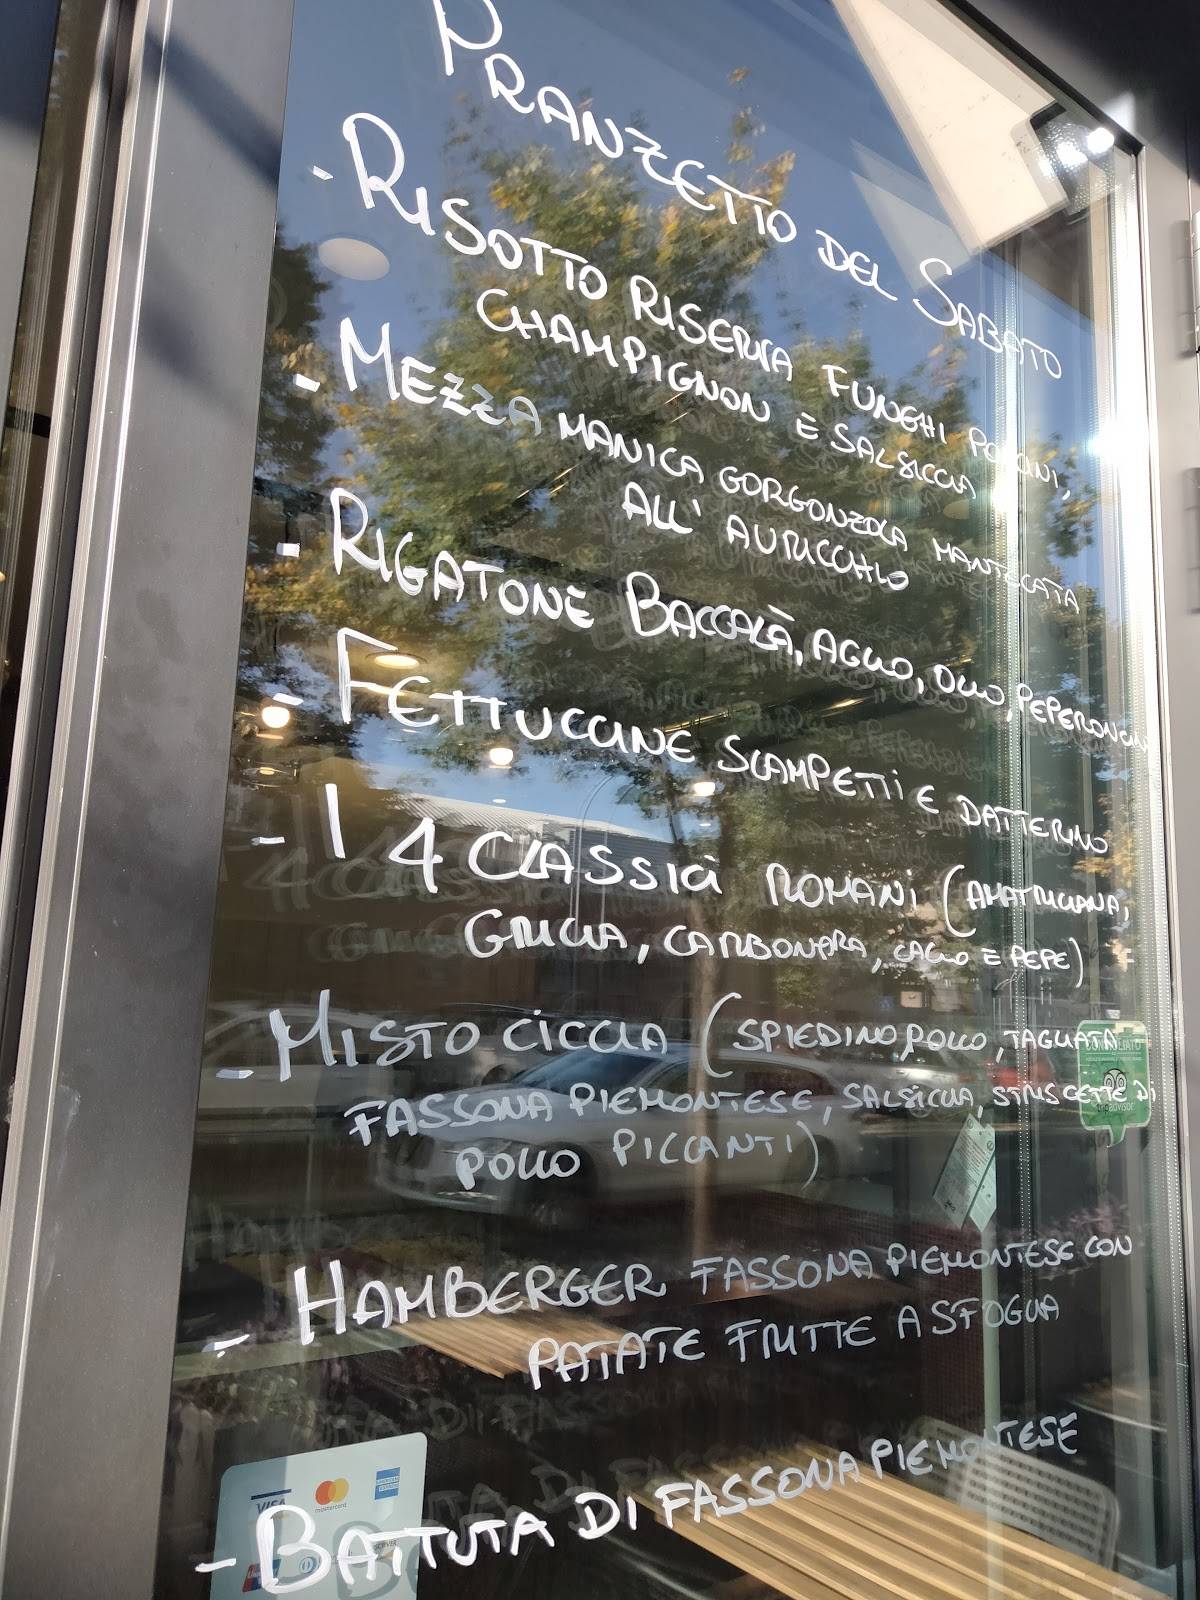 PRANZETTO DEL SABATO
- RISOTTO RISERVA FUNGHI PORCINI,
CHAMPIGNON E SALSICCIA
- MEZZA MANICA GORGONZOLA MANTECATA
ALL' AURICCHIO
- RIGATONE BACCALÀ, AGLIO, OLIO, PEPERONCIN
- FETTUCCINE SCAMPETTI E DATTERINO
- I 4 CLASSICI ROMANI (AMATRICIANA,
GRICIA, CARBONARA, CACIO E PEPE)
- MISTO CICCIA (SPIEDINO POLLO, TAGLIATA
FASSONA PIEMONTESE, SALSICCIA, STRISCETTE DI
POLLO PICCANTI)
- HAMBERGER FASSONA PIEMONTESE CON
PATATE FRITTE A SFOGLIA
- BATTUTA DI FASSONA PIEMONTESE
VISA
mastercard
AMERICAN EXPRESS